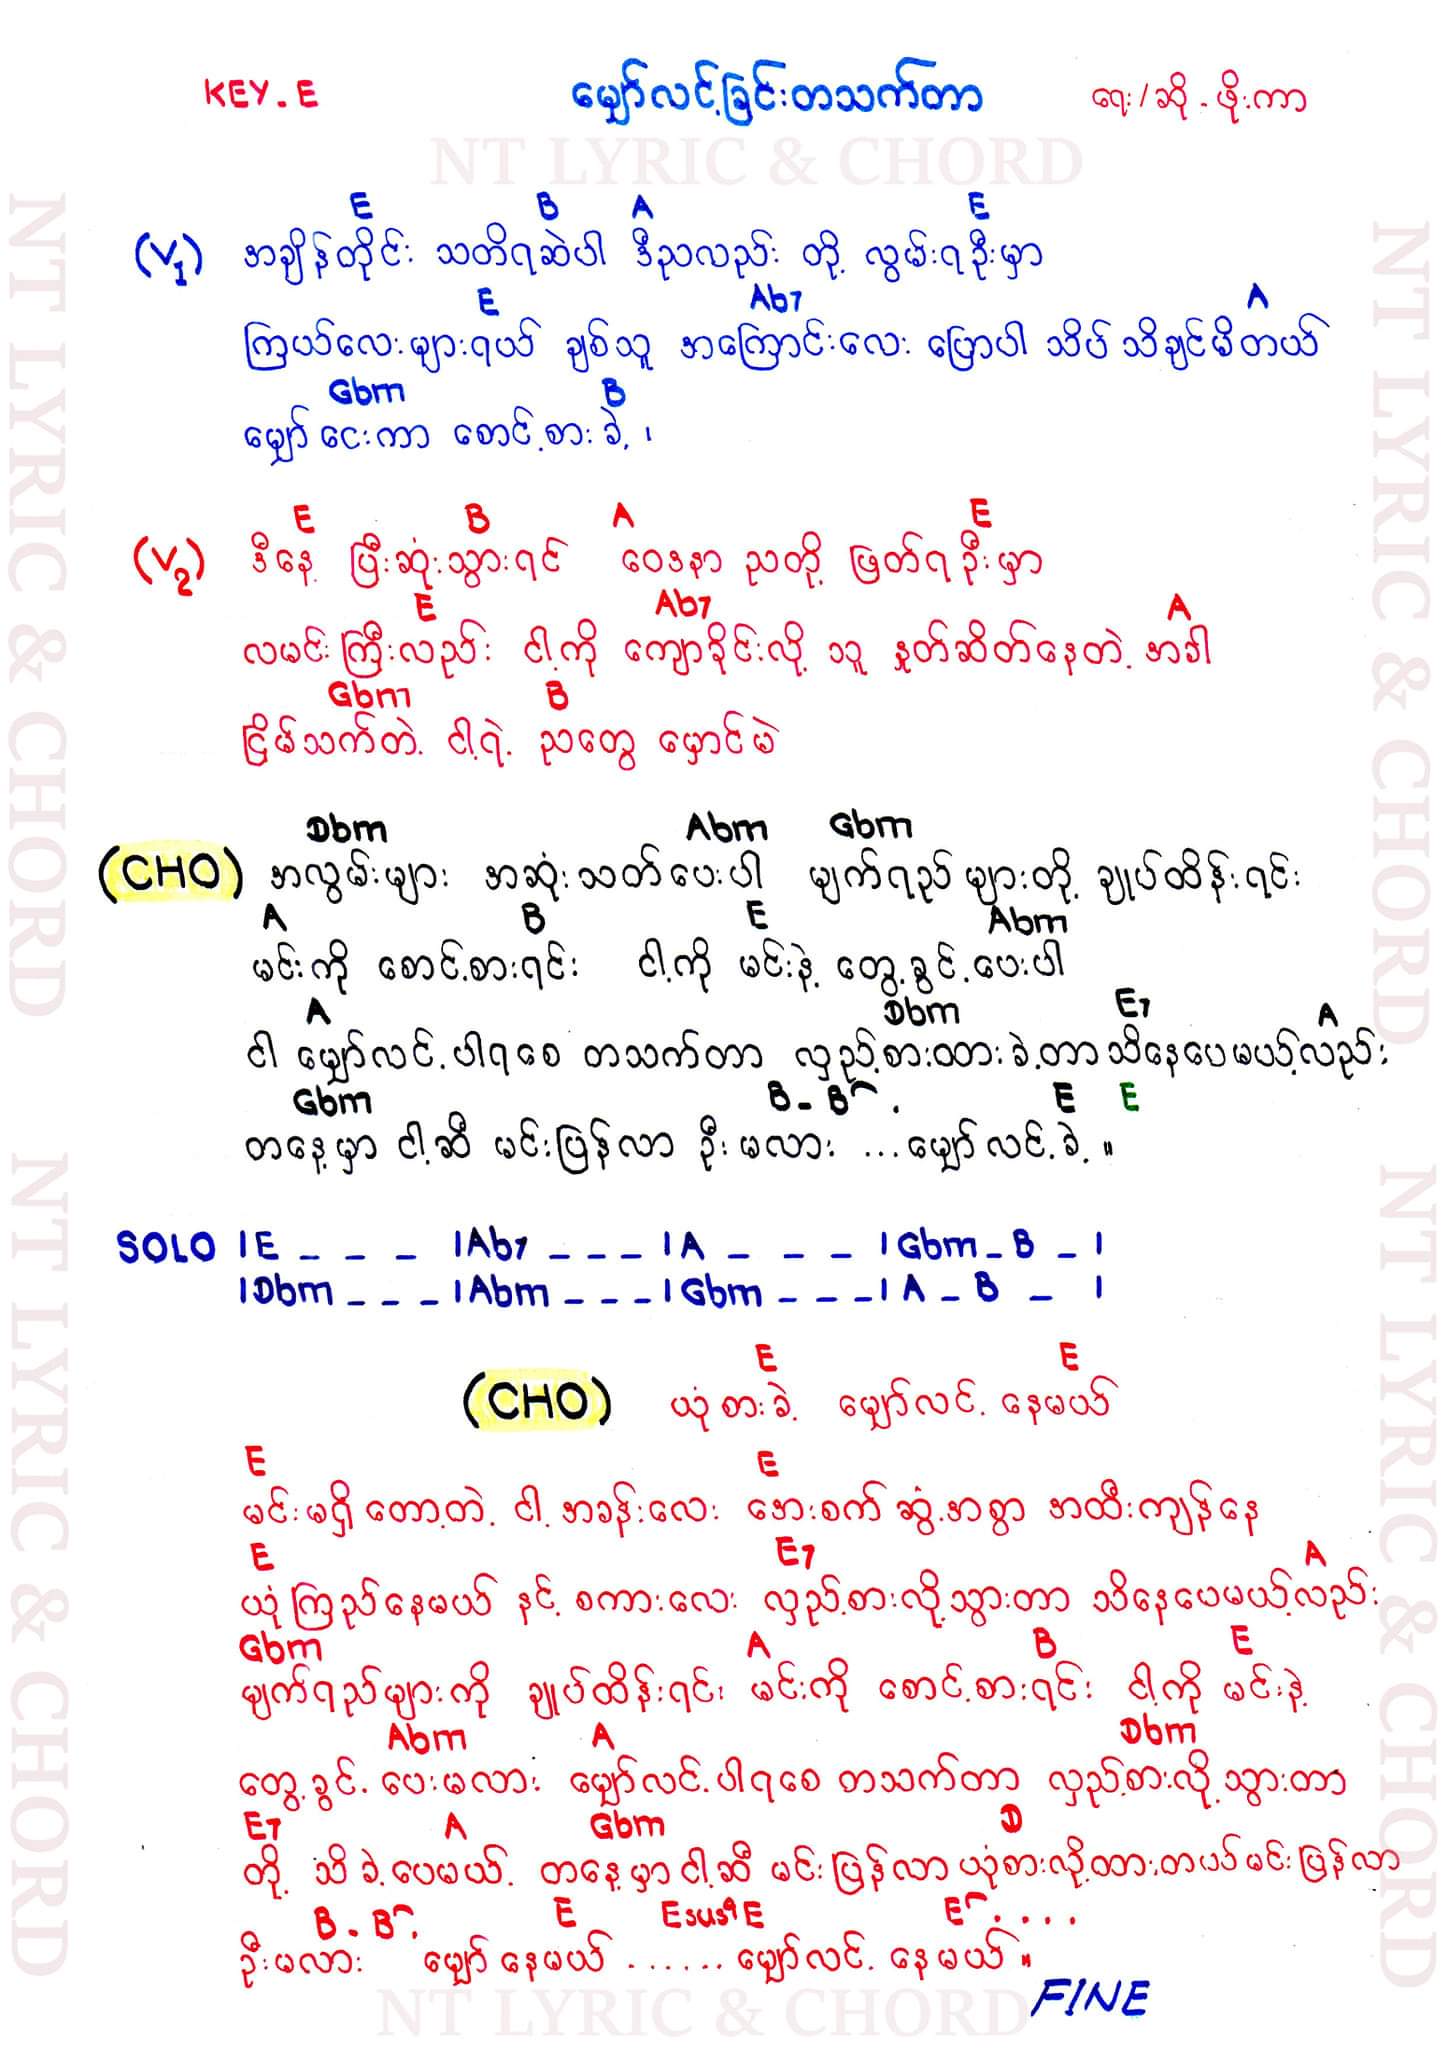 KEY. E မျှော်လင့်ခြင်းတသက်တာ ရေး/ဆို - ဖိုးကာ
NT LYRIC & CHORD
E B A E
(V1) အချိန်တိုင်း သတိရဆဲပါ ဒီညလည်း တို့ လွမ်းရဦးမှာ
E Ab7 A
ကြယ်လေးများရယ် ချစ်သူ အကြောင်းလေး ပြောပါ သိပ် သိချင်မိတယ်
Gbm B
မျှော် ငေးကာ စောင့်စားခဲ့ ၊
E B A E
(V2) ဒီနေ့ ပြီးဆုံးသွားရင် ဝေဒနာ ညတို့ ဖြတ်ရ ဦးမှာ
E Ab7 A
လမင်းကြီးလည်း ငါ့ကို ကျောခိုင်းလို့ သူ နှုတ်ဆိတ်နေတဲ့ အခါ
Gbm B
ငြိမ်သက်တဲ့ ငါ့ရဲ့ ညတွေ မှောင်မဲ
Dbm Abm Gbm
(CHO) အလွမ်းများ အဆုံးသတ်ပေးပါ မျက်ရည်များတို့ ချုပ်ထိန်းရင်း
A B E Abm
မင်းကို စောင့်စားရင်း ငါ့ကို မင်းနဲ့ တွေ့ခွင့်ပေးပါ
A Dbm E7 A
ငါ မျှော်လင့်ပါရစေ တသက်တာ လှည့်စားထားခဲ့တာသိနေပေမယ့်လည်း
Gbm B - B . E E
တနေ့မှာ ငါ့ဆီ မင်းပြန်လာ ဦးမလား ...မျှော်လင့်ခဲ့ ။
SOLO |E _ _ _ |Ab7 _ _ _ |A _ _ _ |Gbm _ B _ |
|Dbm _ _ _ |Abm _ _ _ |Gbm _ _ _ |A _ B _ |
E E
(CHO) ယုံစားခဲ့ မျှော်လင့်နေမယ်
E E
မင်းမရှိတော့တဲ့ ငါ့အခန်းလေး အေးစက် ဆွံ့အစွာ အထီးကျန်နေ
E E7 A
ယုံကြည်နေမယ် နင့်စကားလေး လှည့်စားလို့သွားတာ သိနေပေမယ့်လည်း
Gbm A B E
မျက်ရည်များကို ချုပ်ထိန်းရင်း မင်းကို စောင့်စားရင်း ငါ့ကို မင်းနဲ့
Abm A Dbm
တွေ့ခွင့်ပေးမလား မျှော်လင့်ပါရစေ တသက်တာ လှည့်စားလို့သွားတာ
E7 A Gbm D
တို့ သိခဲ့ပေမယ့် တနေ့မှာငါ့ဆီ မင်းပြန်လာ ယုံစားလို့ထားတယ်မင်းပြန်လာ
B - B . E Esus4 E E . . . .
ဦးမလား မျှော်နေမယ် ......မျှော်လင့်နေမယ် ။
FINE
NT LYRIC & CHORD
NT LYRIC & CHORD
NT LYRIC & CHORD
NT LYRIC & CHORD
NT LYRIC & CHORD